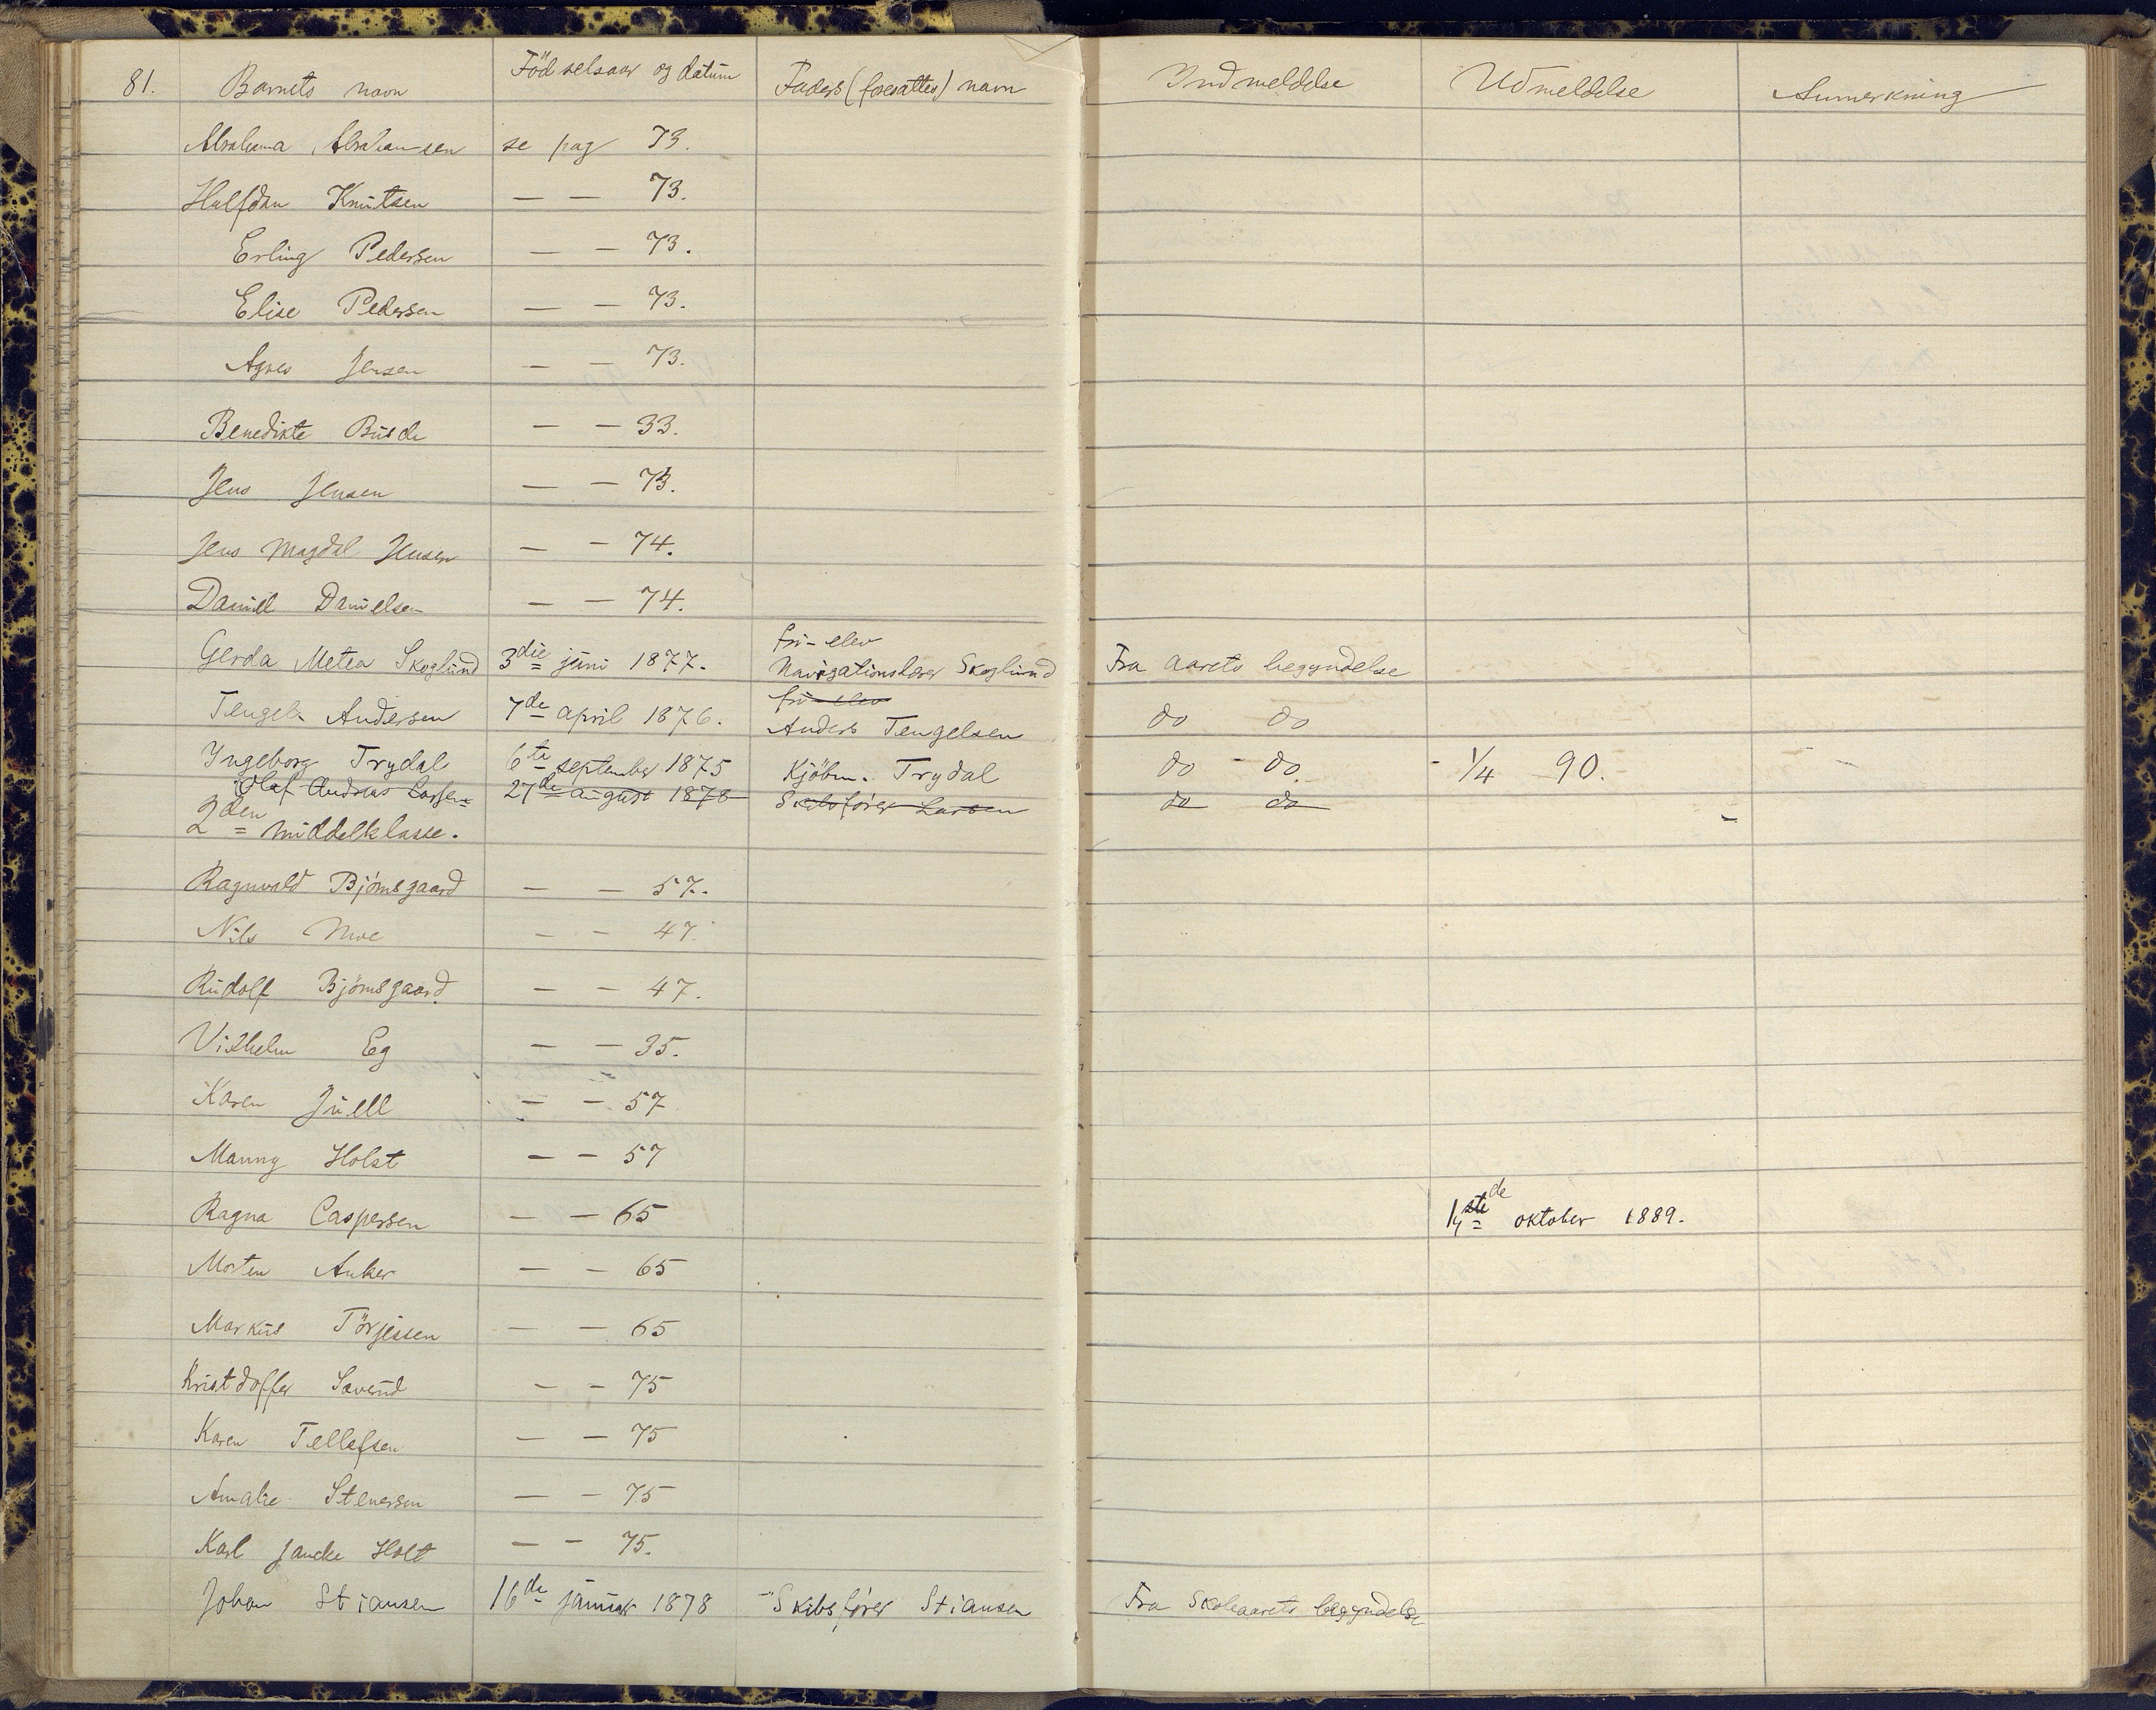 81. Barnets navn Födselsaar og datum Faders (foresattes) navn Indmeldelse Udmeldelse Anmerkning
Abrahama Abrahamsen se pag 73.
Halfdan Knutsen — — 73.
Erling Pedersen — — 73.
Elise Pedersen — — 73.
Agnes Jensen — — 73.
Benedikte Busch — — 33.
Jens Jensen — — 73.
Jens Magdal. Jensen — — 74.
Daniel Danielsen — — 74.
fri-elev
Gerda Metea Skoglund 3die juni 1877. Navigationslærer Skoglund Fra aarets begyndelse
fri-elev
Tengel Andersen 7de april 1876. Anders Tengelsen do do
Ingeborg Trydal 6te september 1875 Kjöbm. Trydal do - do - 1/4 90.
Olaf Andreas Larsen 27de august 1878 Skibsfører Larsen do do
2den middelklasse.
Ragnvald Björnsgaard — — 57.
Nils Moe — — 47.
Rudolf Björnsgaard — — 47.
Vilhelm Eg — — 35.
Karen Juell — — 57
Manny Holst — — 57
Ragna Caspersen — — 65 oktober 1889.
Morten Anker — — 65
Markus Törjessen — — 65
Kristdoffer — — 75
Karen Tellefsen — — 75
Amalie Stenersen — — 75
Karl Jancke Holt — — 75.
Johan Stiansen 16de januar 1878 Skibsfører Stiansen Fra Skoleaarets begyndelse